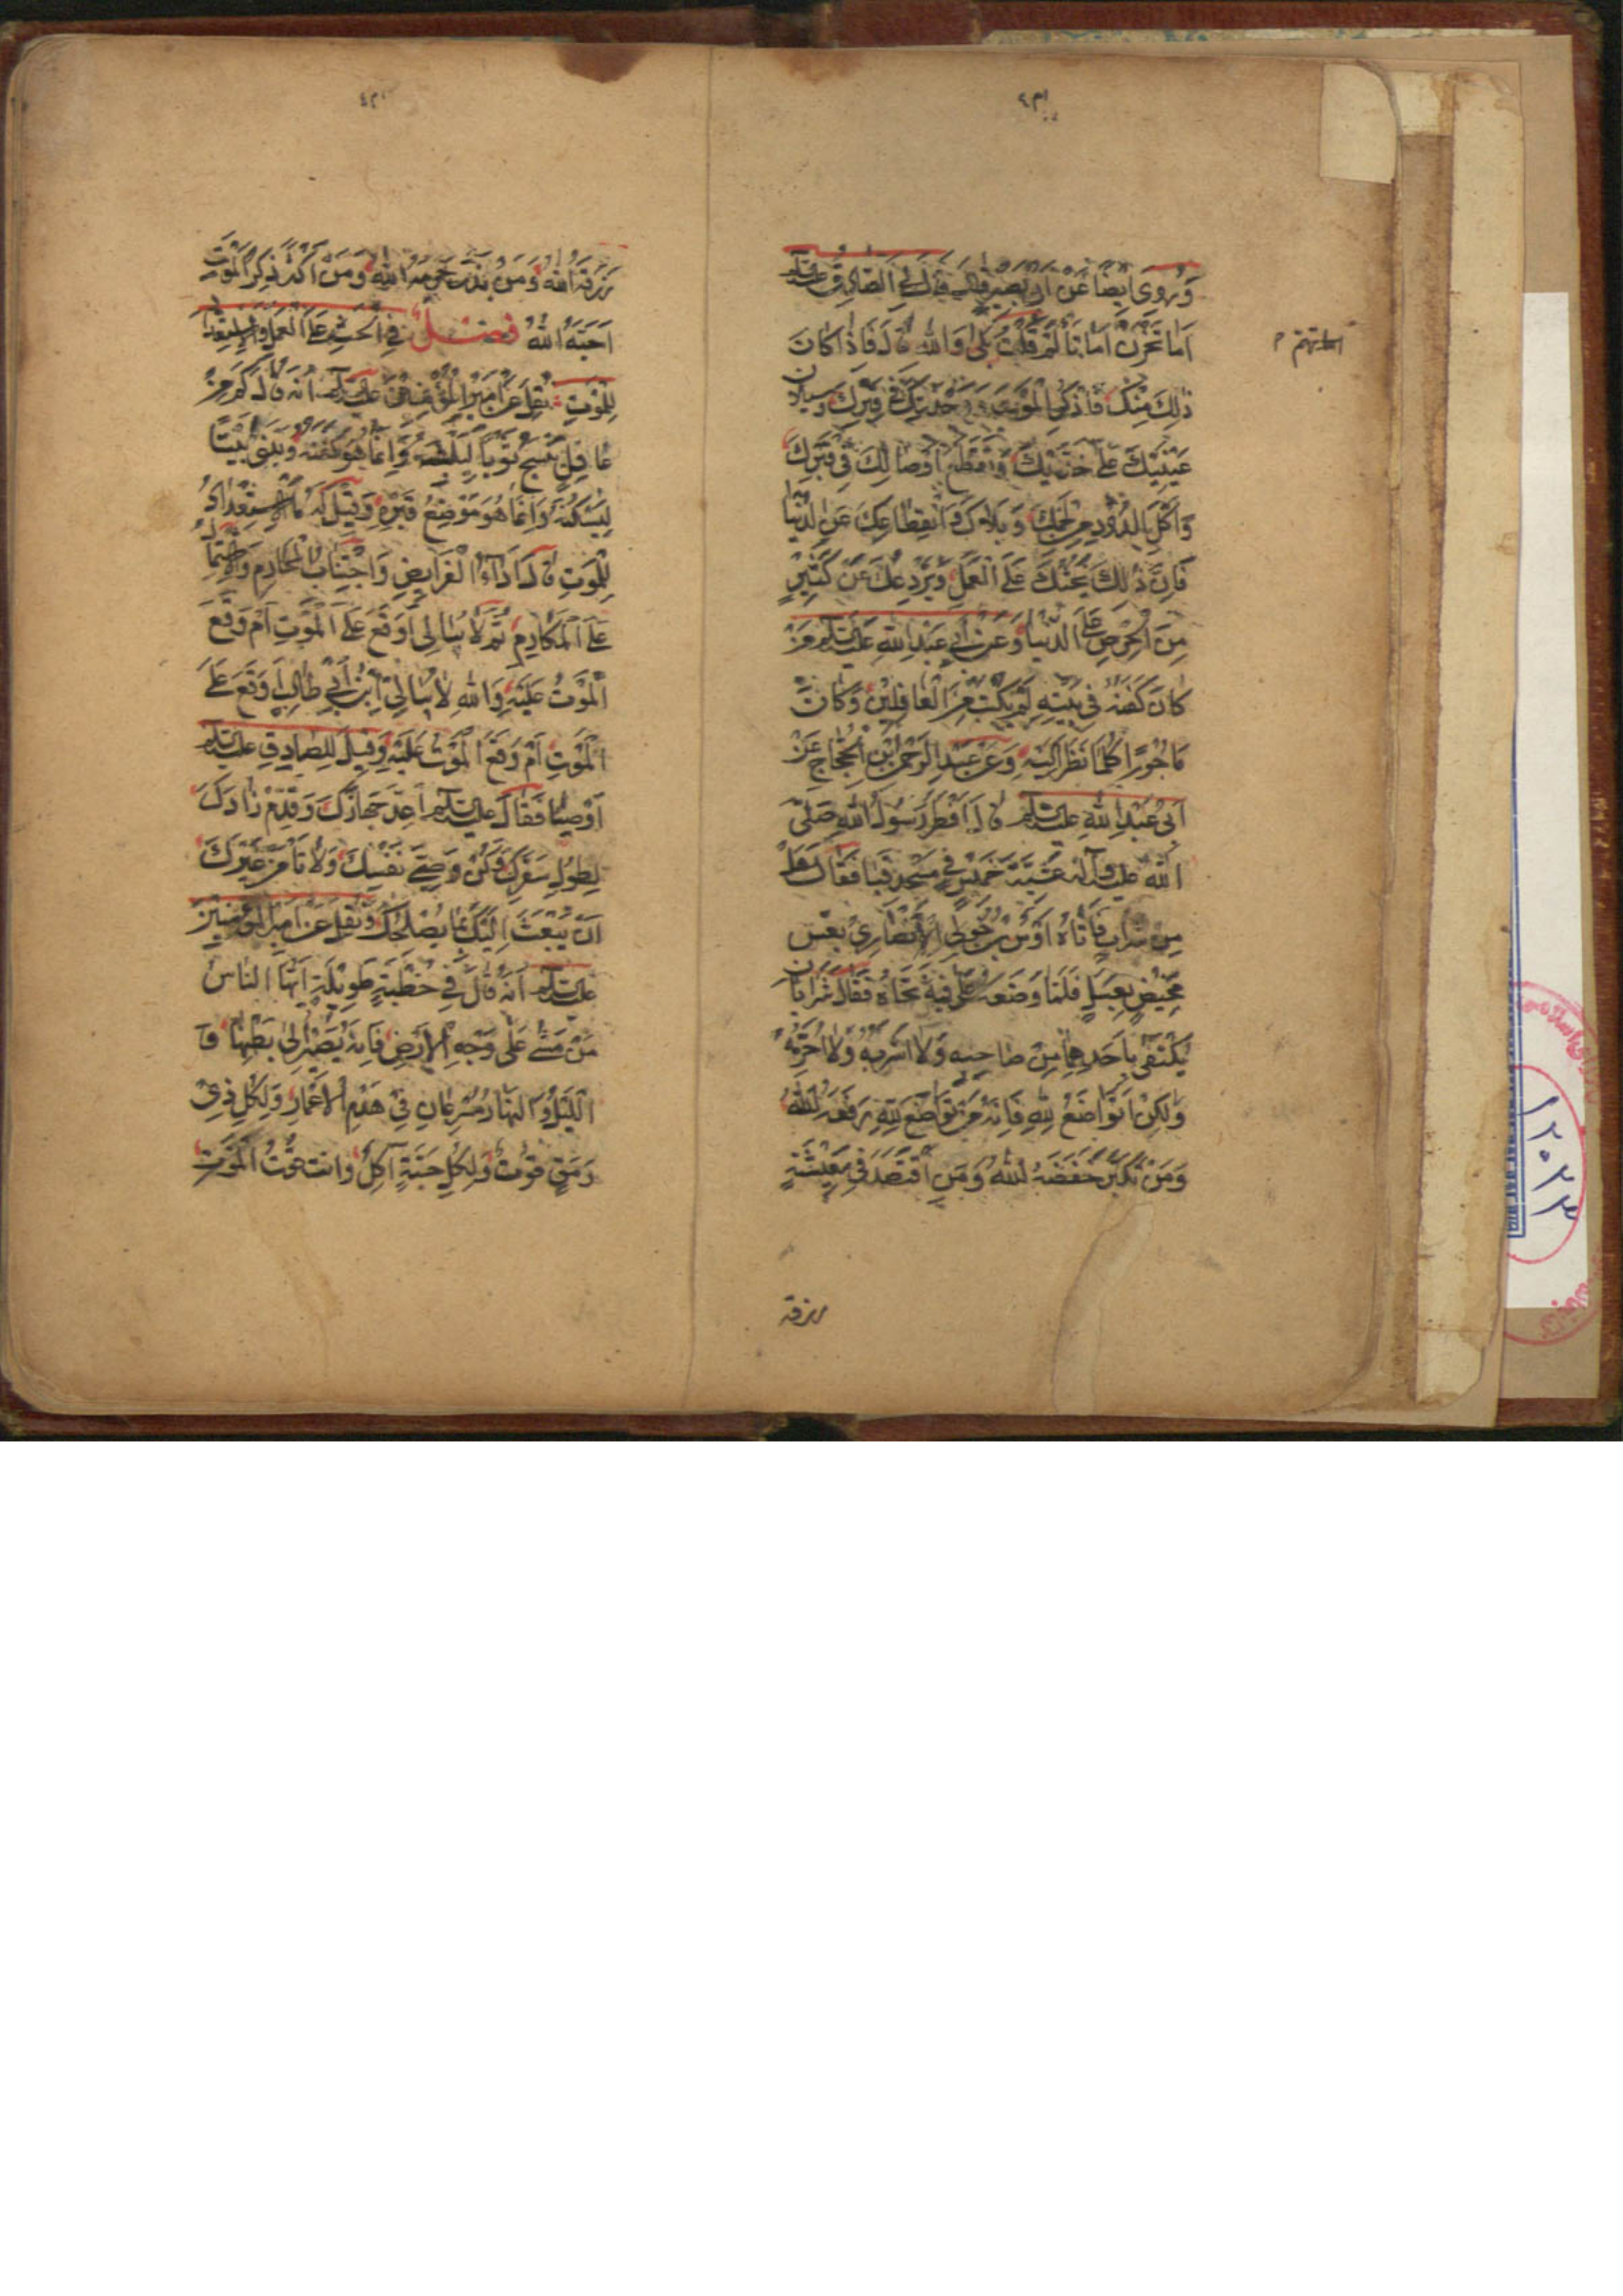 وَرُوِيَ اَيْضاً عَنْ اَبِي بَصِيرٍ قَالَ قَالَ لِيَ الصَّادِقُ عليه السلم
اَمَا تَحْزَنُ اَمَا تَأْلَمُ قُلْتُ بَلَى وَاللهِ قَالَ فَاِذَا كَانَ
اما تهتم
ذٰلِكَ مِنْكَ فَاذْكُرِ الْمَوْتَ وَ وَحْدَتَكَ فِي قَبْرِكَ وَسَيَلانَ
عَيْنَيْكَ عَلَى خَدَّيْكَ وَتَقَطُّعَ اَوْصَالِكَ فِي قَبْرِكَ
وَاَكْلَ الدُّودِ مِنْ لَحْمِكَ وَبَلَاكَ وَانْقِطَاعِكَ عَنِ الدُّنْيَا
فَاِنَّ ذٰلِكَ يَحُثُّكَ عَلَى الْعَمَلِ وَيَرْدَعُكَ عَنْ كَثِيرٍ
مِنَ الْحِرْصِ عَلَى الدُّنْيَا وَعَنْ اَبِي عَبْدِ اللهِ عَلَيْهِ السلم مَنْ
كَانَ كَفَنُهُ فِي بَيْتِهِ لَمْ يُكْتَبْ مِنَ الْغَافِلِيْنَ وَكَانَ
مَاجُورًا كُلَّمَا نَظَرَ اِلَيْهِ وَعَنْ عَبْدِ الرَّحْمٰنِ ابْنِ الْحَجَّاجِ عَنْ
اَبِي عَبْدِ اللهِ عليه السلم قَالَ اَفْطَرَ رَسُولُ اللهِ صَلَّى
اللهُ عليه وآله عَشِيَّةَ خَمِيْسٍ فِي مَسْجِدِ قُبَا فَقَالَ هَلْ
مِنْ شَرَابٍ فَاَتَاهُ اَوْسُ بْنُ خَوْلِي الْاَنْصَارِيُّ بِعُسِّ
مَخِيْضٍ بِعَسَلٍ فَلَمَّا وَضَعَهُ عَلَى فِيْهِ نَحَّاهُ فَقَالَ شَرَابَانِ
يُكْتَفَى بِاَحَدِهِمَا مِنْ صَاحِبِهِ وَلَا اَشْرَبُهُ وَلَا اُحَرِّمُهُ
وَلٰكِنْ اَتَوَاضَعُ لِلّٰهِ فَاِنَّهُ مَنْ تَوَاضَعَ لِلّٰهِ رَفَعَهُ اللهُ
وَمَنْ تَكَبَّرَ خَفَضَهُ اللهُ وَمَنِ اقْتَصَدَ فِي مَعِيْشَتِهِ
رزقه
رَزَقَهُ اللهُ وَمَنْ بَذَّرَ حَرَمَهُ اللهُ وَمَنْ اَكْثَرَ ذِكْرَ الْمَوْتِ
اَحَبَّهُ اللهُ فصل فِي الْحَثِّ عَلَى الْعَمَلِ وَالْاِسْتِعْدَادِ
لِلْمَوْتِ نُقِلَ عَنْ اَمِيْرِ الْمُؤْمِنِيْنَ عليه السلم اَنَّهُ قَالَ كَمْ مِنْ
غَافِلٍ يَنْسِجُ ثَوْباً لِيَلْبَسَهُ وَاِنَّمَا هُوَ كَفَنُهُ وَيَبْنِي بَيْتاً
لِيَسْكُنَهُ وَاِنَّمَا هُوَ مَوْضِعُ قَبْرِهِ وَقِيْلَ لَهُ مَا الْاِسْتِعْدَادُ
لِلْمَوْتِ قَالَ اَدَآءُ الْفَرَايِضِ وَاجْتِنَابُ الْمَحَارِمِ وَالْاِشْتِمَالُ
عَلَى الْمَكَارِمِ ثُمَّ لَا يُبَالِي اَوَقَعَ عَلَى الْمَوْتِ اَمْ وَقَعَ
الْمَوْتُ عَلَيْهِ وَاللهِ لَا يُبَالِي ابْنُ اَبِي طَالِبٍ اَوَقَعَ عَلَى
الْمَوْتِ اَمْ وَقَعَ الْمَوْتُ عَلَيْهِ وَقِيْلَ لِلصَّادِقِ عليه السلم
اَوْصِنَا فَقَالَ عليه السلم اَعِدَّ جَهَازَكَ وَقَدِّمْ زَادَكَ
لِطُولِ سَفَرِكَ وَكُنْ وَصِيَّ نَفْسِكَ وَلَا تَأْمَنْ غَيْرَكَ
اَنْ يَبْعَثَ اِلَيْكَ بِمَا يُصْلِحُكَ وَنُقِلَ عَنْ اَمِيْرِ الْمُؤْمِنِيْنَ
عليه السلم اَنَّهُ قَالَ فِي خُطْبَةٍ طَوِيْلَةٍ اَيُّهَا النَّاسُ
مَنْ مَشَى عَلَى وَجْهِ الْاَرْضِ فَاِنَّهُ يَصِيْرُ اِلَى بَطْنِهَا وَ
اللَّيْلُ وَالنَّهَارُ مُسْرِعَانِ فِي هَدْمِ الْاَعْمَارِ وَلِكُلِّ ذِي
رَمَقٍ قُوْتٌ وَلِكُلِّ حَبَّةٍ آكِلٌ وَانت قُوْتُ الْمَوْتِ